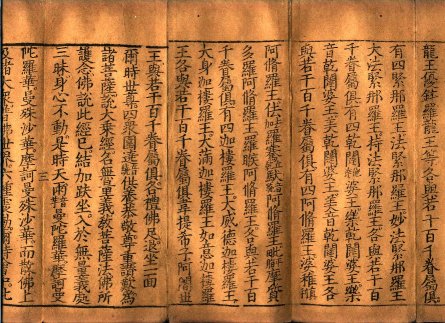 龍王優鉢羅龍王等各與若干百千眷屬俱
有四緊那羅王法緊那羅王妙法緊那羅王
大法緊那羅王持法緊那羅王各與若干百
千眷屬俱有四乾闥婆王樂乾闥婆王樂
音乾闥婆王美乾闥婆王美音乾闥婆王各
與若干百千眷屬俱有四阿脩羅王婆稚
阿脩羅王佉羅騫馱阿脩羅王毗摩質
多羅阿脩羅王羅睺阿脩羅王各與若干百
千眷屬俱有四迦樓羅王大威德迦樓羅王
大身迦樓羅王大滿迦樓羅王如意迦樓羅
王各與若干百千眷屬俱韋提希子阿闍世
王與若干百千眷屬俱各禮佛足退坐一面
爾時世尊四衆圍遶供養恭敬尊重讚歎爲
諸菩薩說大乘經名無量義教菩薩法佛所
護念佛說此經已結加趺坐入於無量義處
三昧身心不動是時天雨曼陀羅華摩訶曼
陀羅華曼殊沙華摩訶曼殊沙華而散佛上
及諸大衆普佛世界六種震動爾時會中比